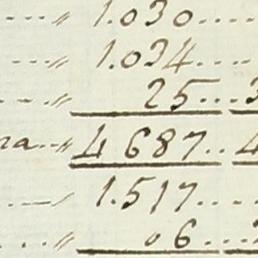 ...〃 1.030....
...〃 1.034....
...〃 25...3
ra...〃 4687..4
...〃 1.517....
...〃 06....